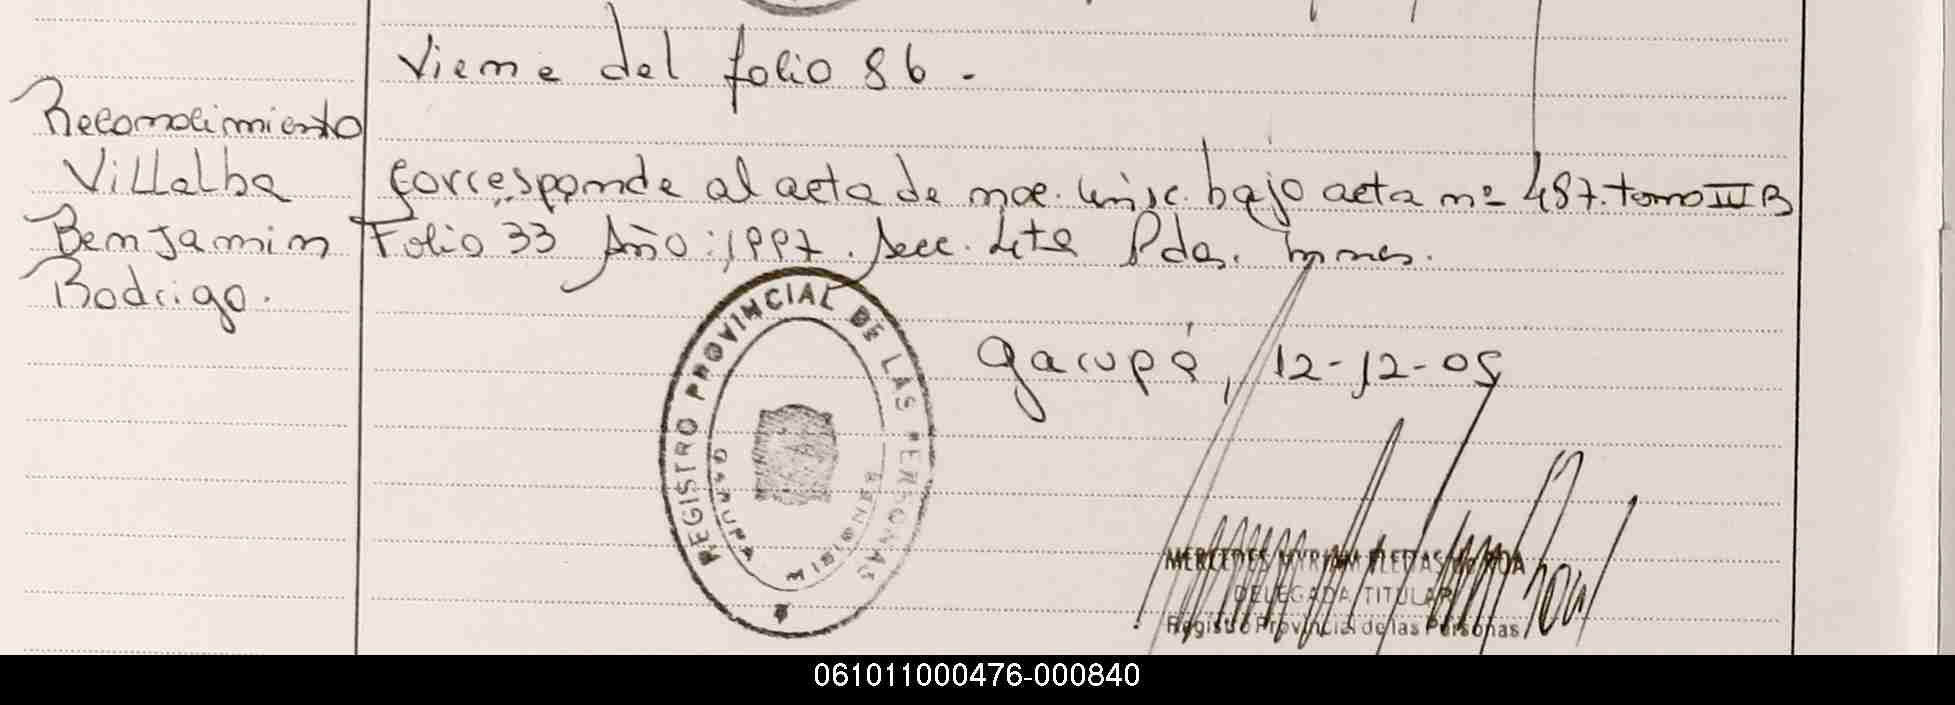 Viene del folio 86.
Reconocimiento
Villalba
Benjamin
Rodrigo.
Corresponde al acta de nac. insc. bajo acta nº 487. tomo III B
Folio 33 Año: 1997. Secc. 4ta Pdas. Mnes.
REGISTRO PROVINCIAL DE LAS PERSONAS
GARUPA
MISIONES
Garupá, 12-12-05
MERCEDES MYRIAM FLEITAS de
DELEGADA TITULAR
Registro Provincial de las Personas
061011000476-000840